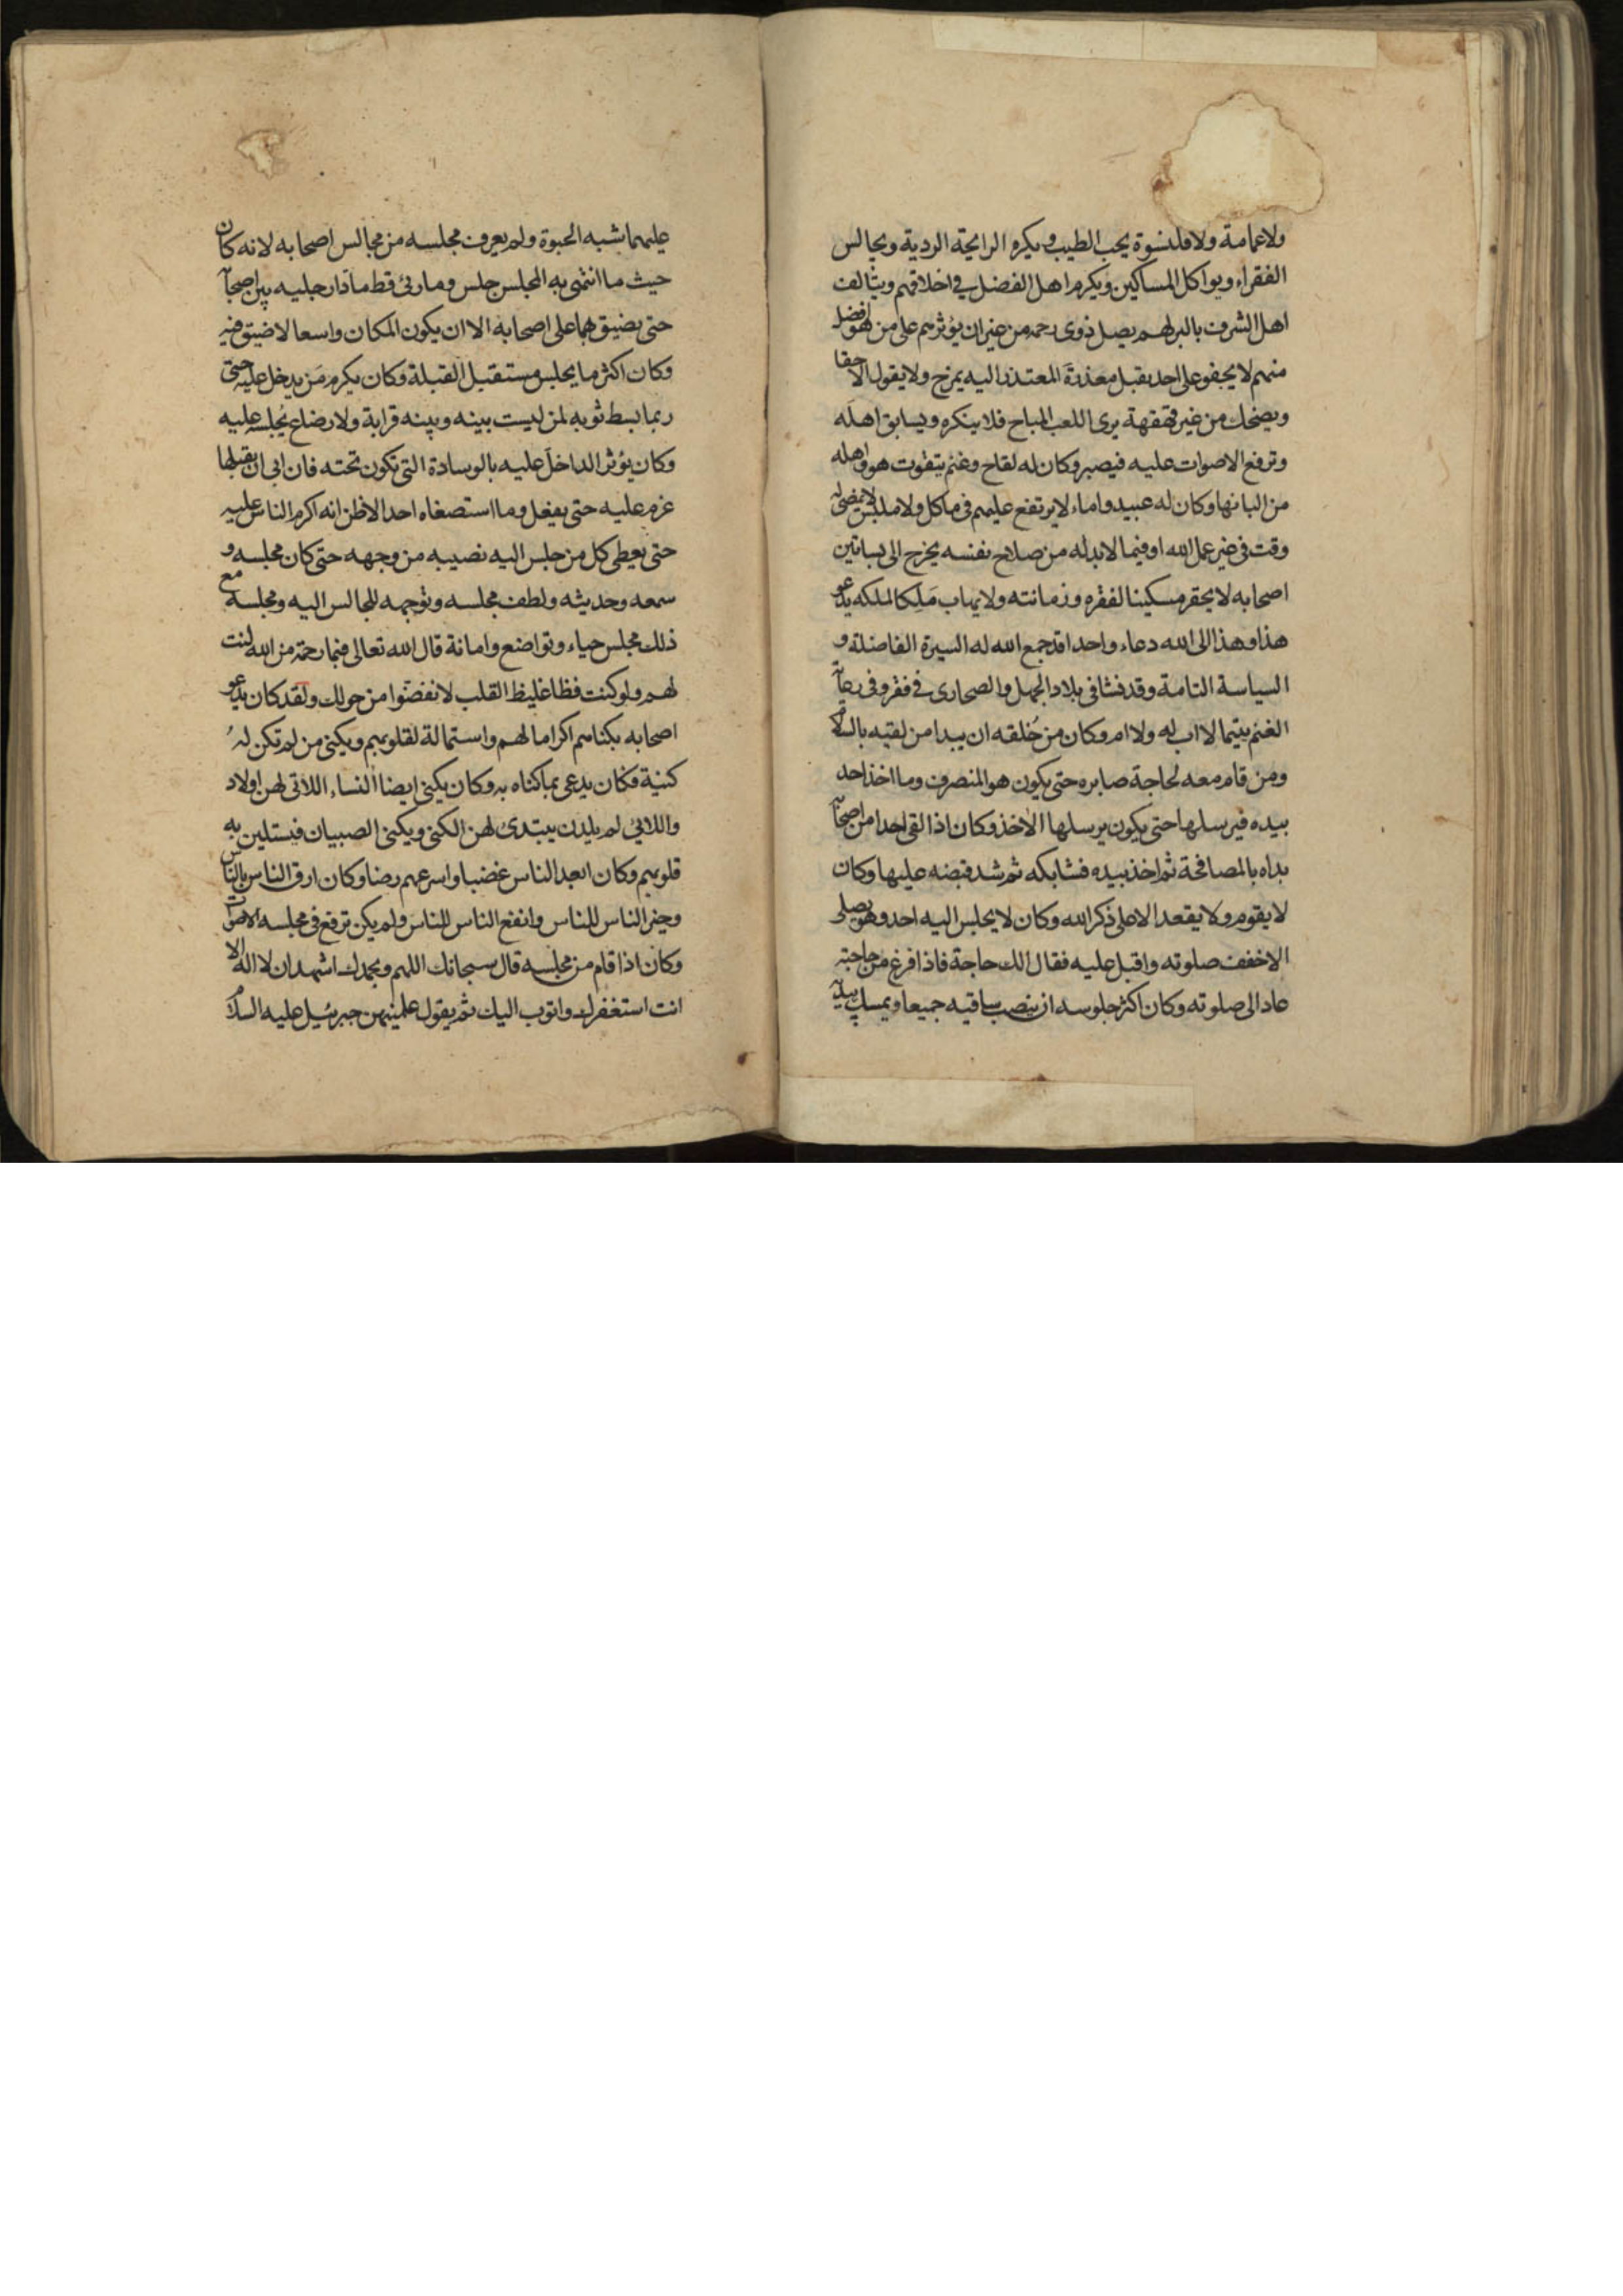 ولا عمامة ولا قلنسوة يحب الطيب ويكره الرايحة الردية ويجالس
الفقراء ويواكل المساكين ويكرم اهل الفضل في اخلاقهم ويتالف
اهل الشرف بالبر لهم يصل ذوى رحمه من غير ان يؤثرهم على من هو افضل
منهم لا يجفو على احد يقبل معذرة المعتذر اليه يمزح ولا يقول الا حقا
ويضحك من غير قهقهة يرى اللعب المباح فلا ينكره ويسابق اهله
وترفع الاصوات عليه فيصبر وكان له لقاح وغنم يتقوت هو واهله
من البانها وكان له عبيد واماء لا يرتفع عليهم في ماكل ولا ملبس لا يمضى له
وقت في غير عمل الله او فيما لا بد له من صلاح نفسه يخرج الى بساتين
اصحابه لا يحقر مسكينا لفقره وزمانته ولا يهاب ملكا لملكه يدعو
هذا وهذا الى الله دعاء واحدا قد جمع الله له السيرة الفاضلة و
السياسة التامة وقد نشا في بلاد الجهل والصحارى في فقر وفي رعاية
الغنم يتيما لا اب له ولا ام وكان من خُلقه ان يبدا من لقيه بالسلام
ومن قام معه لحاجة صابره حتى يكون هو المنصرف وما اخذ احد
بيده فيرسلها حتى يكون يرسلها الآخذ وكان اذا لقى احدا من اصحابه
بداه بالمصافحة ثم اخذ بيده فشابكه ثم شد قبضه عليها وكان
لا يقوم ولا يقعد الا على ذكر الله وكان لا يجلس اليه احد وهو يصلى
الا خفف صلوته واقبل عليه فقال الك حاجة فاذا فرغ من حاجته
عاد الى صلوته وكان اكثر جلوسه ان ينصب ساقيه جميعا ويمسك بيديه
عليهما شبه الحبوة ولم يعرف مجلسه من مجالس اصحابه لانه كان
حيث ما انتهى به المجلس جلس وما رئ قط مادا رجليه بين اصحابه
حتى يضيق بهما على اصحابه الا ان يكون المكان واسعا لا ضيق فيه
وكان اكثر ما يجلس مستقبل القبلة وكان يكرم مَن يدخل عليه حتى
ربما بسط ثوبه لمن ليست بينه وبينه قرابة ولا رضاع يُجلسه عليه
وكان يؤثر الداخل عليه بالوسادة التي تكون تحته فان ابى ان يقبلها
عزم عليه حتى يفعل وما استصغاه احد الا ظن انه اكرم الناس عليه
حتى يعطى كل من جلس اليه نصيبه من وجهه حتى كان مجلسه و
سمعه وحديثه ولطف مجلسه وتوجهه للجالس اليه ومجلسه مع
ذلك مجلس حياء وتواضع وامانة قال الله تعالى فبما رحمة من الله لنت
لهم ولو كنت فظا غليظ القلب لانفضوا من حولك ولقد كان يدعو
اصحابه بكناهم اكراما لهم واستمالة لقلوبهم ويكنى من لم تكن لهُ
كنية فكان يدعى بما كناه به وكان يكنى ايضا النساء اللاتي لهن اولاد
واللائي لم يلدن يبتدئ لهن الكنى ويكنى الصبيان فيستلين به
قلوبهم وكان ابعد الناس غضبا واسرعهم رضا وكان ارق الناس بالناس
وخير الناس للناس وانفع الناس للناس ولم يكن ترفع في مجلسه الاصوات
وكان اذا قام من مجلسه قال سبحانك اللهم وبحمدك اشهد ان لا اله الا
انت استغفرك واتوب اليك ثم يقول علمنيهن جبرئيل عليه السلام